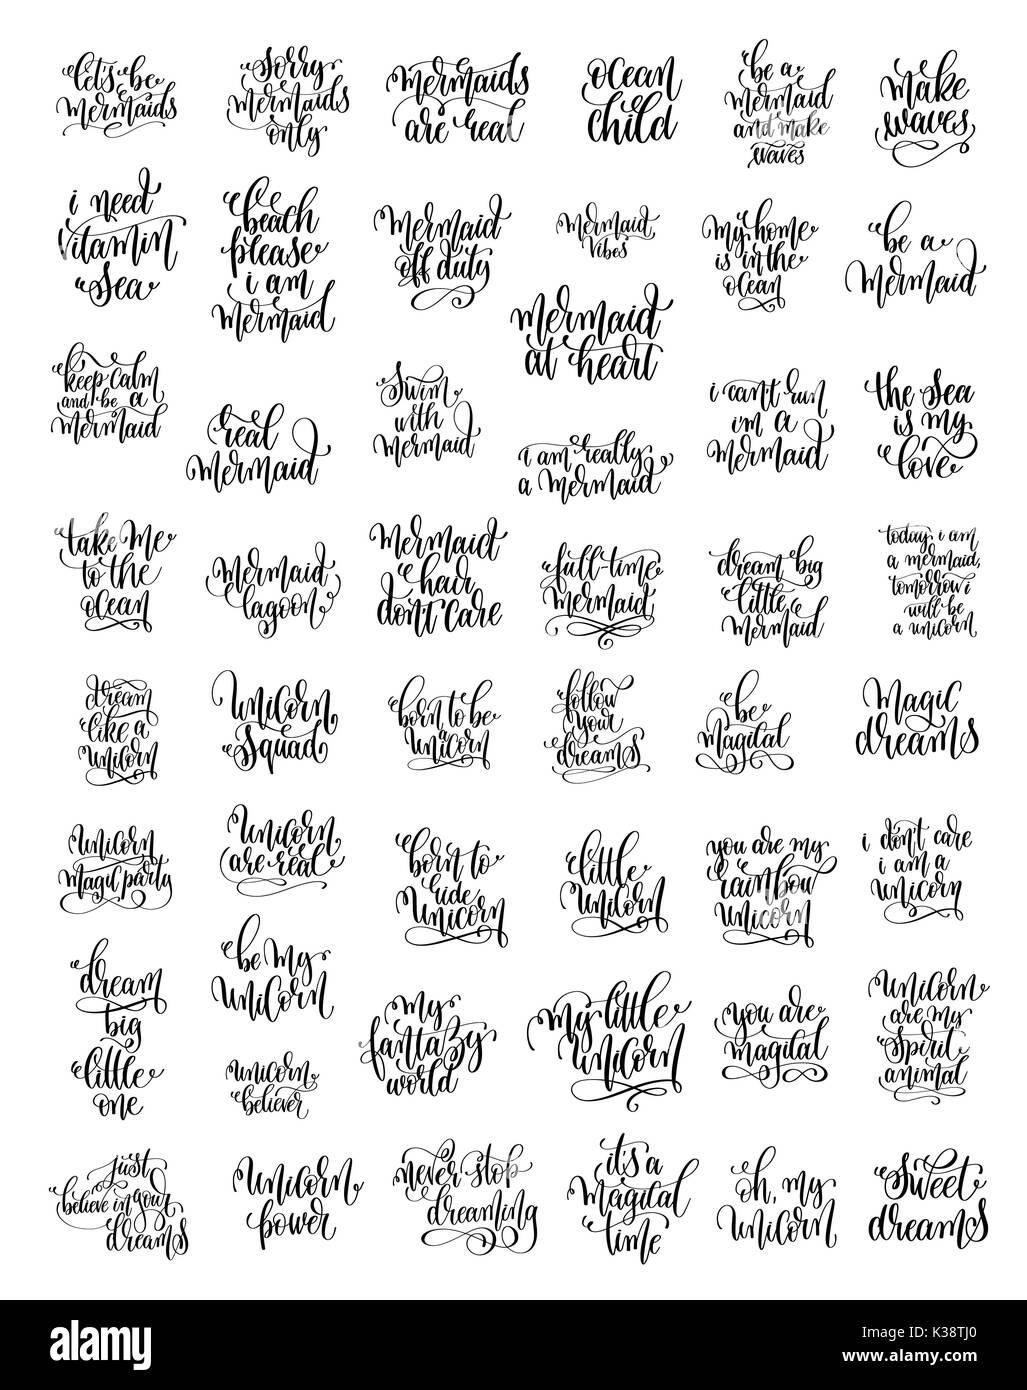 let's be
mermaids
sorry
mermaids
only
mermaids
are real
ocean
child
be a
mermaid
and make
waves
make
waves
i need
vitamin
sea
beach
please
i am
mermaid
mermaid
off duty
mermaid
vibes
my home
is in the
ocean
be a
mermaid
mermaid
at heart
keep calm
and be a
mermaid
real
mermaid
swim
with
mermaid
i am really
a mermaid
i can't run
i'm a
mermaid
the sea
is my
love
take me
to the
ocean
mermaid
lagoon
mermaid
hair
don't care
full-time
mermaid
dream big
little
mermaid
today i am
a mermaid,
tomorrow i
will be
a unicorn
dream
like a
unicorn
unicorn
squad
born to be
a
unicorn
follow
your
dreams
be
magical
magic
dreams
unicorn
magic party
unicorn
are real
born to
ride
unicorn
little
unicorn
you are my
rainbow
unicorn
i don't care
i am a
unicorn
dream
big
little
one
be my
unicorn
unicorn
believer
my
fantazy
world
my little
unicorn
you are
magical
unicorn
are my
spirit
animal
just
believe in your
dreams
unicorn
power
never stop
dreaming
it's a
magical
time
oh, my
unicorn
sweet
dreams
alamy
Image ID: K38TJ0
www.alamy.com